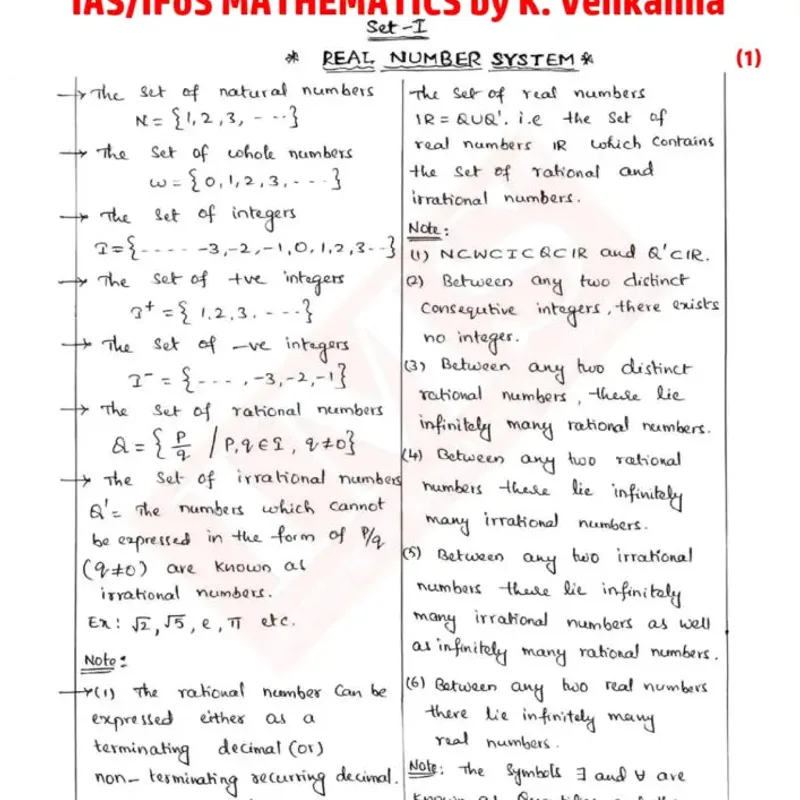 IAS/IFoS MATHEMATICS by K. Venkanna
Set-I
* REAL NUMBER SYSTEM *
(1)
→ The set of natural numbers
N = {1, 2, 3, - - -}
→ The set of whole numbers
W = {0, 1, 2, 3, - - - -}
→ The set of integers
I = {- - - - - -3, -2, -1, 0, 1, 2, 3 - -}
→ The set of +ve integers
I⁺ = {1, 2, 3, - - - -}
→ The set of -ve integers
I⁻ = {- - - -, -3, -2, -1}
→ The set of rational numbers
Q = {p/q / p, q ∈ I, q ≠ 0}
→ The set of irrational numbers
Q' = The numbers which cannot
be expressed in the form of p/q
(q ≠ 0) are known as
irrational numbers.
Ex: √2, √5, e, π etc.
Note:
→ (1) The rational number can be
expressed either as a
terminating decimal (or)
non-terminating recurring decimal.
The set of real numbers
IR = Q ∪ Q'. i.e the set of
real numbers IR which contains
the set of rational and
irrational numbers.
Note:
(1) N ⊂ W ⊂ I ⊂ Q ⊂ IR and Q' ⊂ IR.
(2) Between any two distinct
consequtive integers, there exists
no integer.
(3) Between any two distinct
rational numbers, there lie
infinitely many rational numbers.
(4) Between any two rational
numbers there lie infinitely
many irrational numbers.
(5) Between any two irrational
numbers there lie infinitely
many irrational numbers as well
as infinitely many rational numbers.
(6) Between any two real numbers
there lie infinitely many
real numbers.
Note: The symbols ∃ and ∀ are